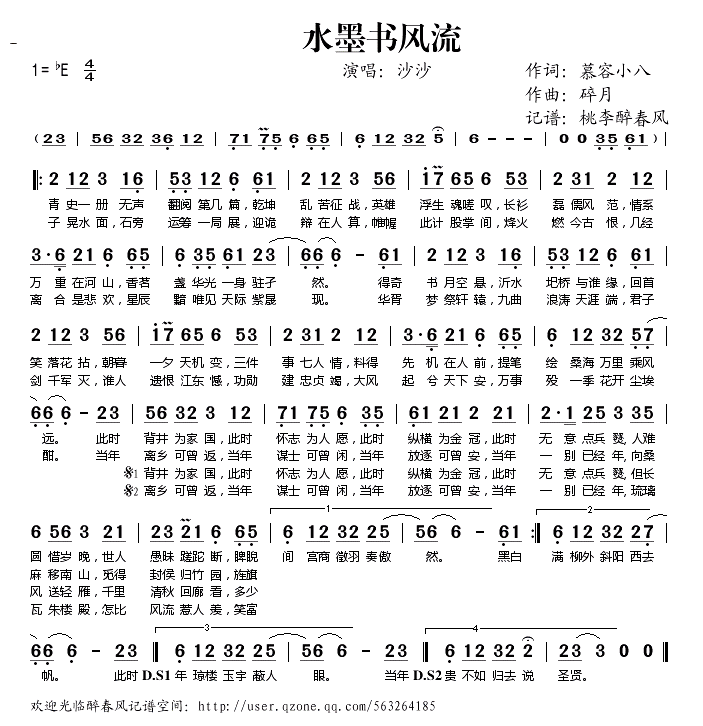 水墨书风流
1=♭E 4/4
演唱：沙沙
作词：慕容小八
作曲：碎月
记谱：桃李醉春风
(23 | 56 32 36 12 | 71 75 6 65 | 6 32 12 5 | 6 - - - | 0 0 35 61)
‖: 2 12 3 16 | 53 12 6 61 | 2 12 3 56 | i7 65 6 53 | 2 12 3 61
青史一册无声 翻阅第几篇，乾坤 乱苦征战，英雄 浮生魂嗟叹，长衫 磊儒风范，情系
子晃水面，石旁 运筹一局展，迎诡 辩在人算，帷幄 此计股掌间，烽火 燃今古恨，几经
3·6 21 6 65 | 6 35 61 23 | 66 6 - 61 | 2 12 3 53 | 53 12 6 61
万重在河山，香茗 盏华光一身驻孑 然。 得奇 书月空悬，沂水 圯桥与谁缘，回首
离合是悲欢，星辰 黯唯见天际紫晟 现。 华胥 梦祭轩辕，九曲 浪涛天涯端，君子
2 12 3 56 | i7 65 6 53 | 2 12 3 61 | 3·6 21 6 65 | 6 35 32 57
笑落花拈，朝春 一夕天机变，三件 事七人情，料得 先机在人前，提笔 绘桑海万里乘风
剑千军灭，谁人 遗恨江东憾，功勋 建忠贞竭，大风 起兮天下安，万事 殁一季花开尘埃
66 6 - 23 | 56 32 3 12 | 71 75 6 35 | 61 21 2 12 | 2·1 25 3 35
远。 此时 背井为家国，此时 怀志为人愿，此时 纵横为金冠，此时 无意点兵燹，人难
酣。 当年 离乡可曾返，当年 谋士可曾闲，当年 放逐可曾安，当年 一别已经年，向桑
𝄋1 背井为家国，此时 怀志为人愿，此时 纵横为金冠，此时 无意点兵燹，但长
𝄋2 离乡可曾返，当年 谋士可曾闲，当年 放逐可曾安，当年 一别已经年，琉璃
6 56 3 21 | 23 21 6 65 | 1 6 12 32 25 | 56 6 - 61 :‖ 2 6 12 32 27
圆惜岁晚，世人 愚昧蹉跎断，睥睨 间宫商徵羽奏傲 然。 黑白 满柳外斜阳西去
麻移南山，觅得 封侯归竹园，旌旗
风送轻雁，千里 清秋回廊看，多少
瓦朱楼殿，怎比 风流惹人羡，笑富
66 6 - 23 | 3 6 12 32 25 | 56 6 - 23 | 4 6 12 56 2 | 23 0 0
帆。 此时 D.S1 年琼楼玉宇蔽人 眼。 当年 D.S2 贵不如归去说 圣贤。
欢迎光临醉春风记谱空间：http://user.qzone.qq.com/563264185